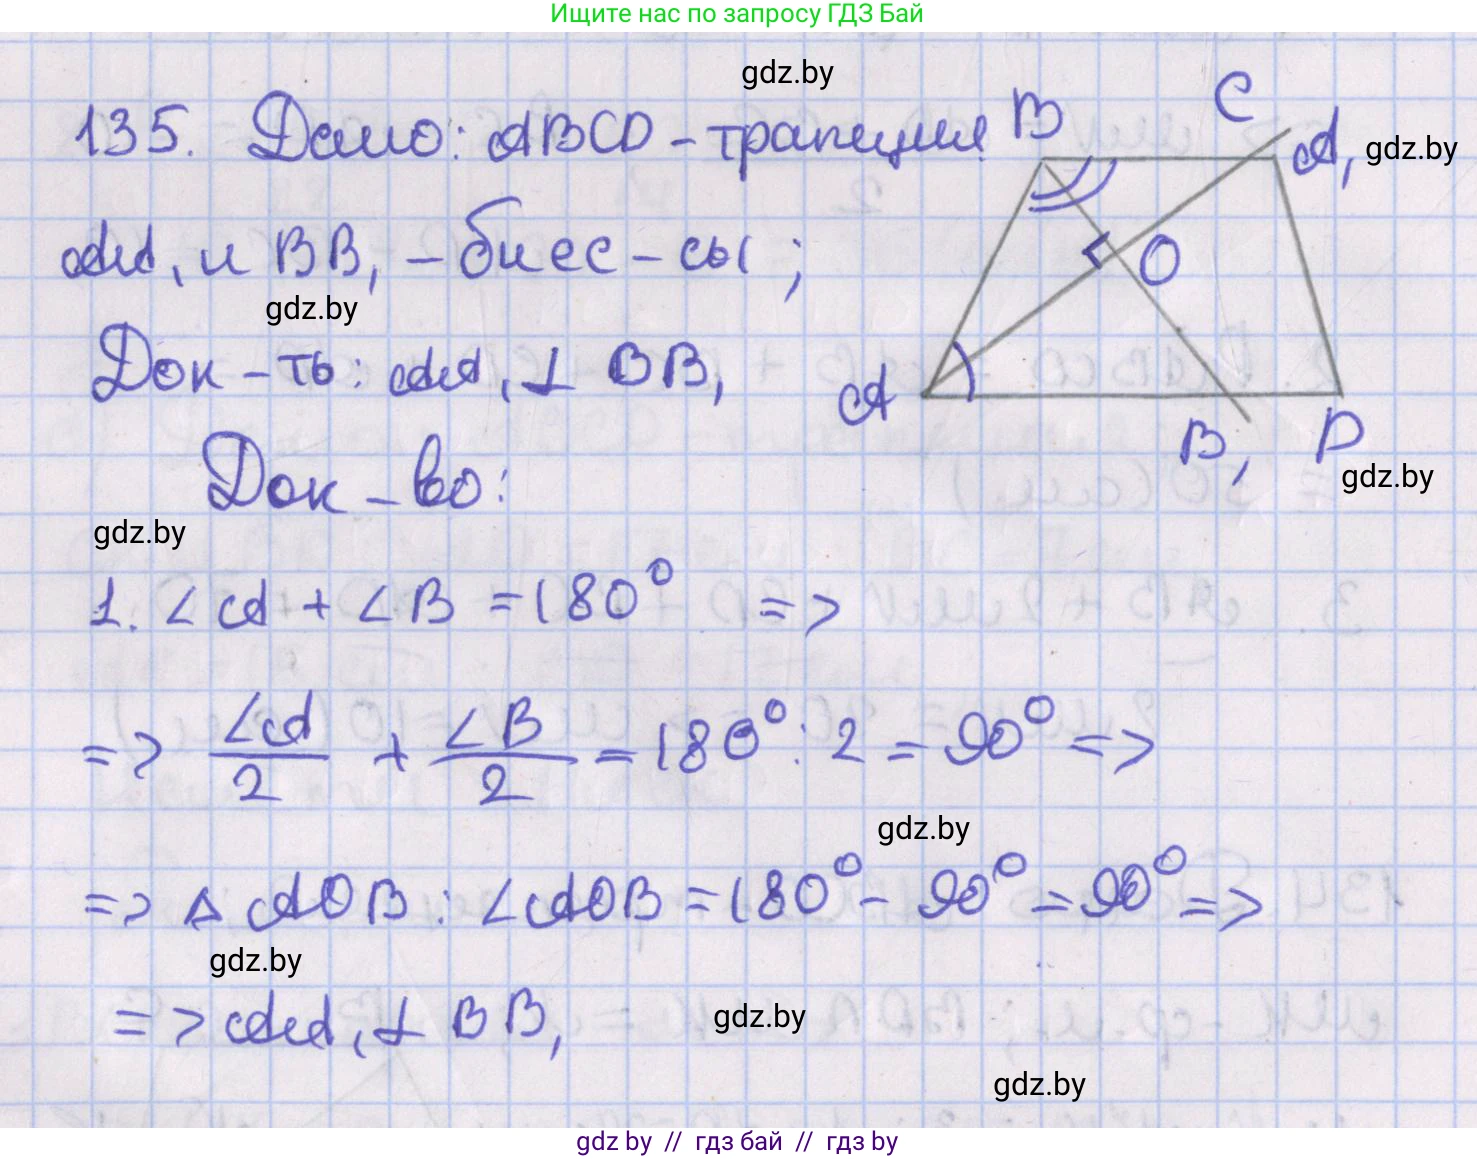 Ищите нас по запросу ГДЗ Бай
gdz.by
135. Дано: ABCD - трапеция
B C A₁
gdz.by
AA₁ и BB₁ - биссс-сы;
O
gdz.by
Док-ть: AA₁ ⊥ BB₁
A B₁ D
gdz.by
Док-во:
gdz.by
1. ∠A + ∠B = 180° =>
=> ∠A/2 + ∠B/2 = 180° : 2 = 90° =>
gdz.by
=> △AOB : ∠AOB = 180° - 90° = 90° =>
gdz.by
=> AA₁ ⊥ BB₁
gdz.by
gdz.by
gdz by // гдз бай // гдз by